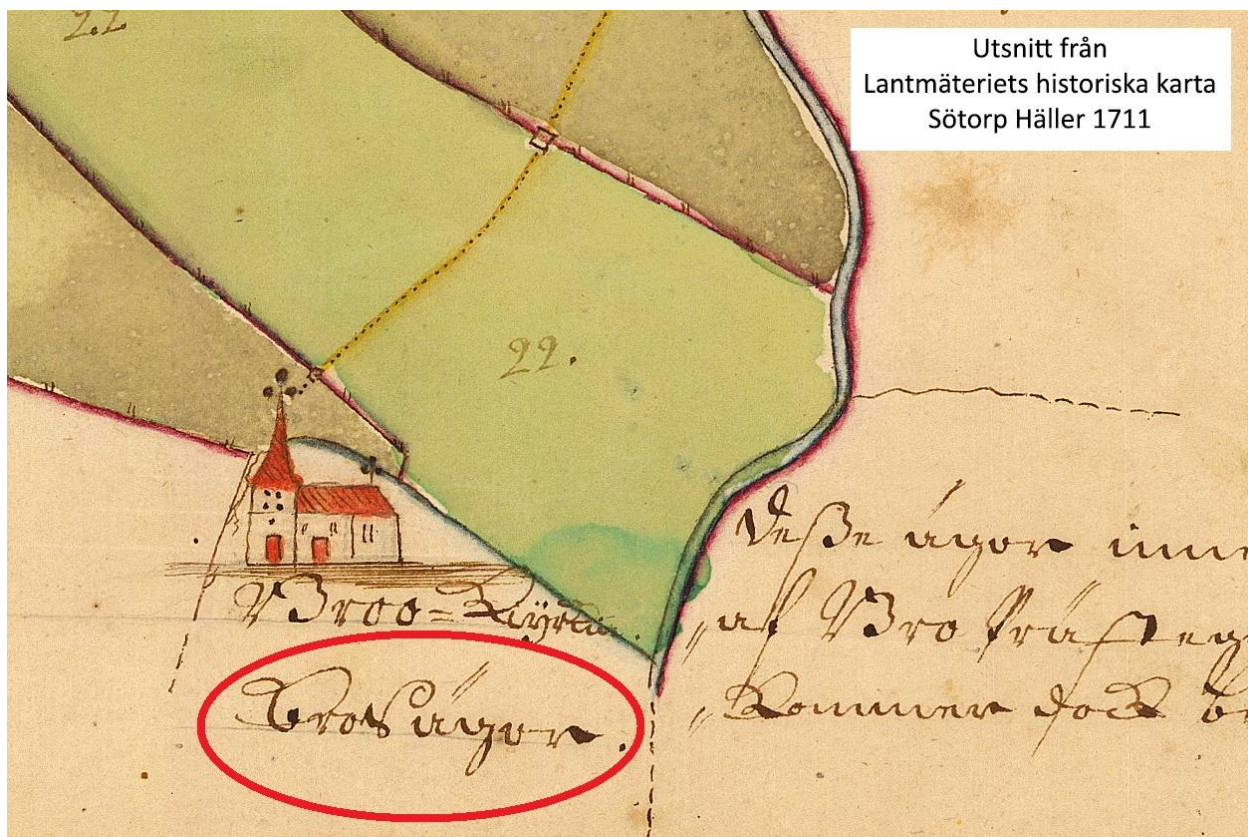 22
Utsnitt från
Lantmäteriets historiska karta
Sötorp Häller 1711
22.
Broo=Kÿrka.
Bros ägor.
Deße ägor inne
af Bro Präste
Kommer dock